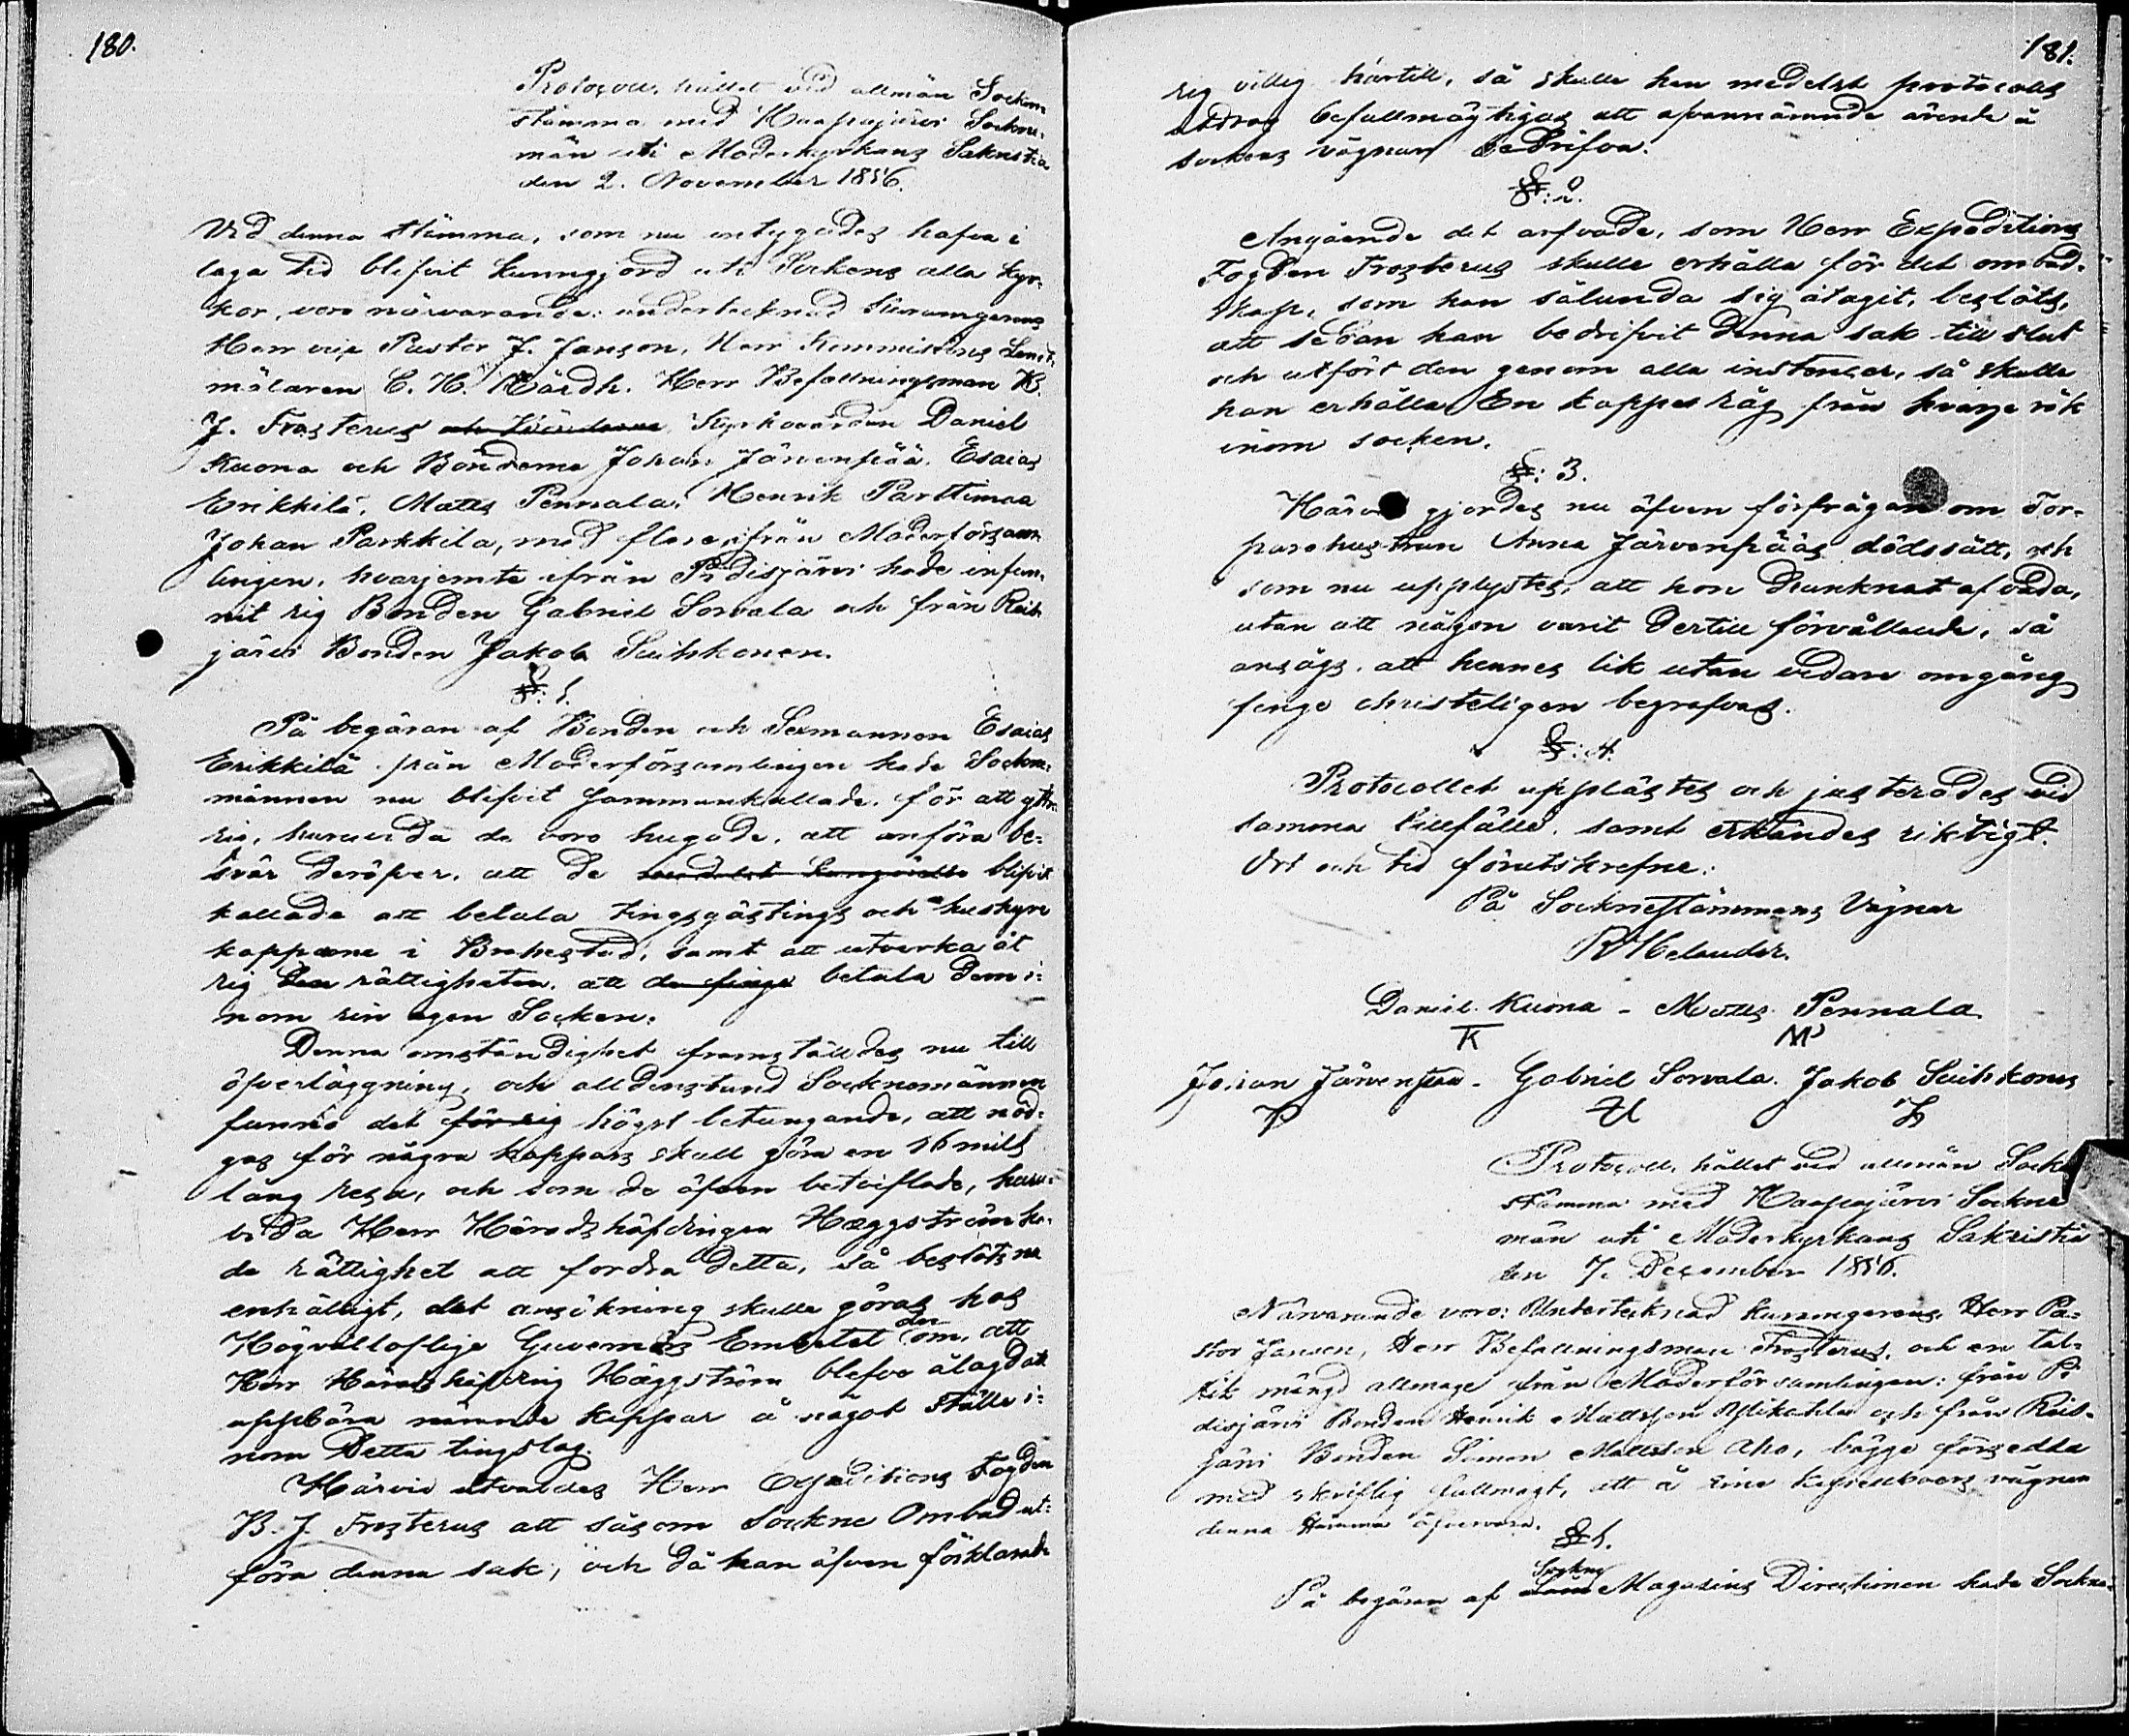 180.
Protocoll, hållet vid allmän Socken-
stämma med Haapajärvi Sockne-
män uti Moderkyrkans Sakristia
den 2. November 1856.
Vid denna stämma, som nu intygades hafva i
laga tid blifvit kunngjord uti Sockens alla kyr-
kor, voro närvarande: undertecknad Kuramgerens
Herr vice Pastor J. Janson, Herr Kommissions Landt-
mätaren C. H. Mårdh. Herr Befallningsman B.
J. Frosterus och Bönderna Kyrkovärden Daniel
Kuona och Bönderne Johan Järvenpää, Esaias
Erikkilä, Matts Pennala, Henrik Parttimaa
Johan Parkkila, med flere ifrån Moderförsam-
lingen, hvarjemte ifrån Pidisjärvi hade infun-
nit sig Bonden Gabriel Sorvala och från Reis-
järvi Bonden Jakob Suihkonen.
§: 1.
På begäran af Bonden och Sexmannen Esaias
Erikkilä från Moderförsamlingen hade Sockne-
männen nu blifvit sammankallade, för att yttra
sig, huruvida de voro hugade, att anföra be-
svär deröfver, att de blifvit
kallade att betala tingsgästnings och huskyre
kapparne i Brahestad, samt att utverka åt
sig den rättigheten, att de finge betala dem i-
nom sin egen Socken.
Denna omständighet framställdes nu till
öfverläggning, och alldenstund Socknemännen
funno det för sig högst betungande, att nöd-
gas för några kappars skull göra en 16 mils
lång resa, och som de äfven betviflade, huru-
vida Herr Häradshöfdingen Hæggström ha-
de rättighet att fordra detta, så beslöts nu
enhälligt, det ansökning skulle göras hos
Högvälloflige Guverneurs Embetet der om, att
Herr Häradshöfding Hæggström blefve ålagd att
uppbära nämnde kappar å något ställe i-
nom detta tingslag.
Härvid utvaldes Herr Expeditions Fogden
B. J. Frosterus att såsom Sockne Ombud ut-
föra denna sak, och då han äfven förklarade
181.
sig villig härtill, så skulle han medelst protocolls
utdrag befullmägtigas att ofvannämnde ärende å
sockens vägnar bedrifva.
§: 2.
Angående det arfvode, som Herr Expeditions
Fogden Frosterus skulle erhålla för det ombud-
skap, som han sålunda sig åtagit, beslöts,
att sedan han bedrifvit denna sak till slut
och utfört den genom alla instanser, så skulle
han erhålla En kappe råg från hvarje rök
inom socken.
§: 3.
Härvid gjordes nu äfven förfrågan om Tor-
parehustrun Anna Järvenpääs dödssätt, och
som nu upplystes, att hon drunknat af våda,
utan att någon varit dertill förvållande, så
ansågs, att hennes lik utan vidare omgång
finge christeligen begrafvas.
§: 4.
Protocollet upplästes och justerades vid
samma tillfälle, samt erkändes riktigt.
Ort och tid förutskrefne:
På Socknestämmans Vägnar
R Helander.
Daniel Kuona - Matts Pennala
K MP
Johan Järvenpää - Gabriel Sorvala. Jakob Suihkonen
Protocoll, hållet vid allmän Socke
stämma med Haapajärvi Sockne
män uti Moderkyrkans Sakristia
den 7. December 1856.
Närvarande voro: Undertecknad Kuramgerens, Herr Pa-
stor Janson, Herr Befallningsman Frosterus, och en tal-
rik mängd allmoge från Moderförsamlingen: från Pi-
disjärvi Bonden Henrik Mattsson Ylikahla och från Reis-
järvi Bonden Simon Mattsson Aho, bägge försedda
med skriftlig fullmagt, att å sine kapellboers vägnar
denna stämma öfvervara.
§ 1.
På begäran af Sockne Magasins Directionen hade Sockne-